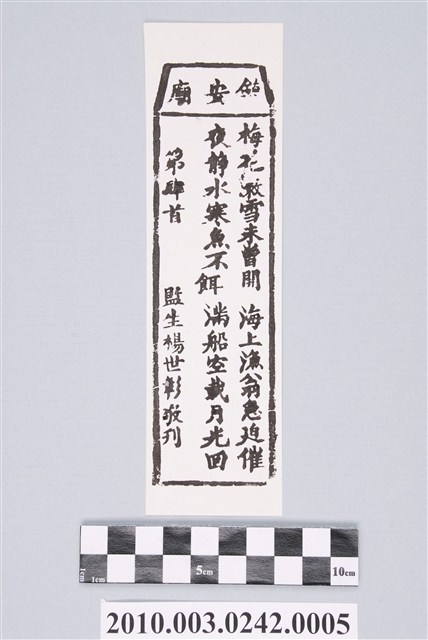 鎮安廟
梅花教雪未曾開 海上漁翁急迫催
夜靜水寒魚不餌 滿船空載月光回
第肆首 監生楊世彰敬刊
1cm
1cm
5cm
10cm
2010.003.0242.0005